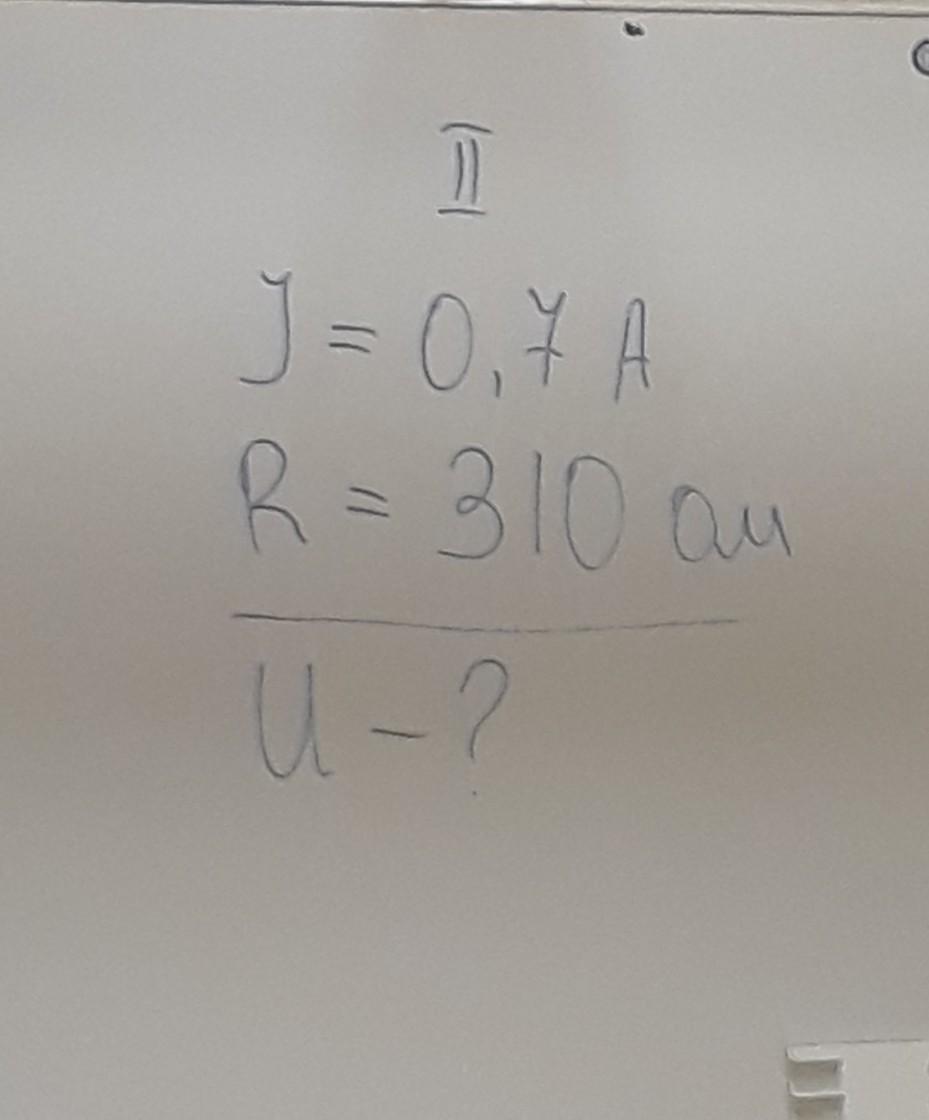 II
J = 0,7 A
R = 310 ом
U - ?